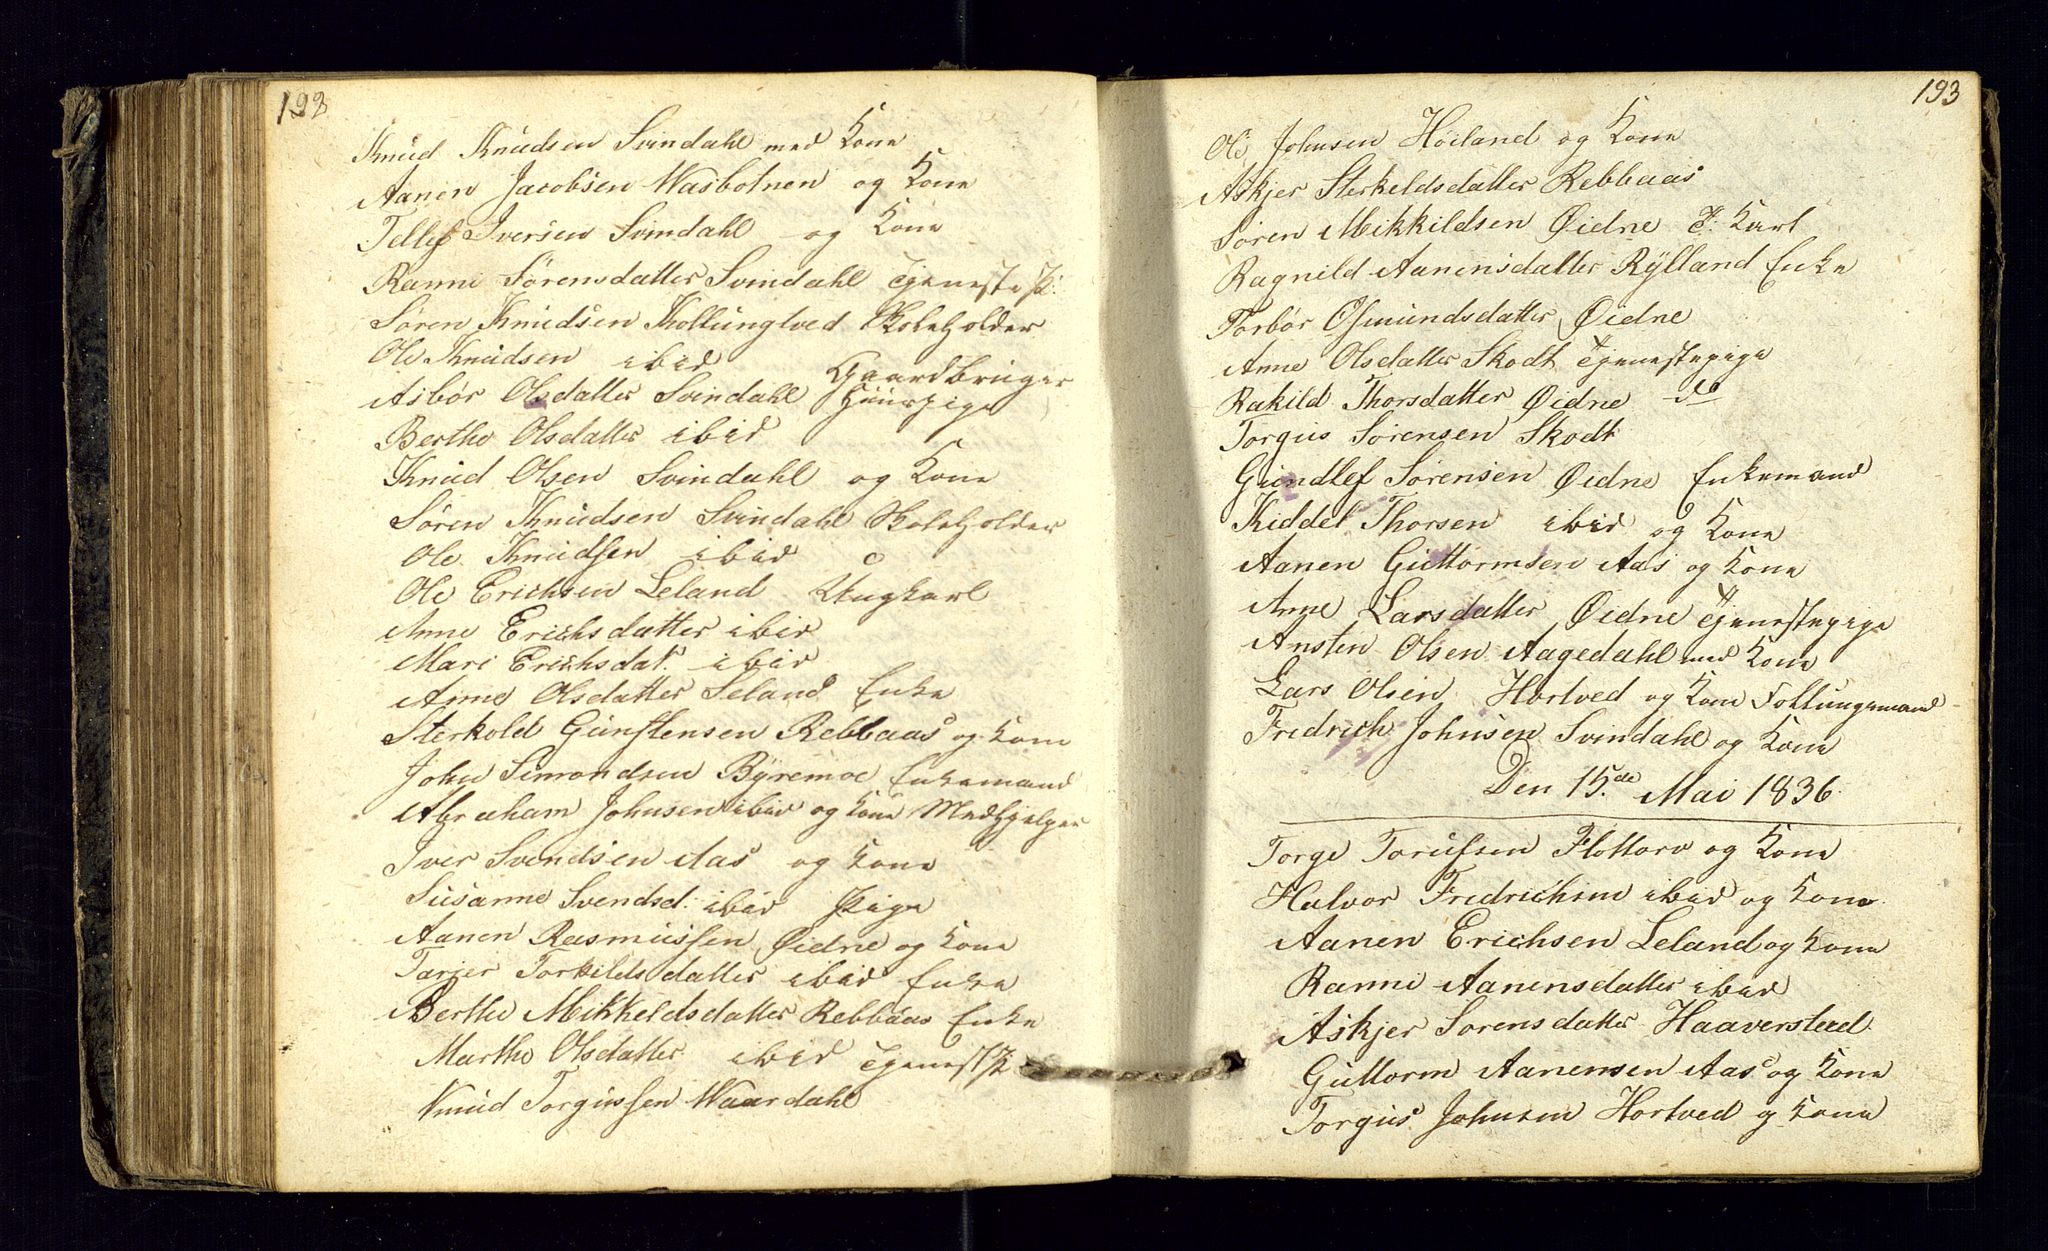 192
Knud Knudsen Svindahl med Kone
Aanen Jacobsen Wasbotnen og Kone
Tellef Iversen Svindahl og Kone
Ranni Sörensdatter Svindahl Tjenestep:
Sören Knudsen Kollungtved Skoleholder
Ole Knudsen ibid Gaardbruger
Asbör Olsdatter Svindahl Huuspige
Berthe Olsdatter ibid
Knud Olsen Svindahl og Kone
Sören Knudsen Svindahl Skoleholder
Ole Knudsen ibid
Ole Erichsen Leland Ungkarl
Anne Erichsdatter ibid
Mari Erichsdat. ibid
Anne Olsdatter Leland Enke
Sterkold Gunstensen Rebbaas og Kone
John Simondsen Byremoe Enkemand
Abraham Johnsen ibid og Kone Medhjelper
Iver Svendsen Aas og Kone
Susanne Svendsd. ibid Pige
Aanen Rasmussen Øidne og Kone
Tarjer Torkildsdatter ibid Enke
Berthe Mikkeldsdatter Rebbaas Enke
Marthe Olsdatter ibid Tjenestp
Knud Torgussen Waardahl
193
Ole Johnsen Höiland og Kone
Askjer Sterkeldsdatter Rebbaas
Sören Mikkildsen Øidne T: Karl
Ragnild Aanensdatter Rylland Enke
Torbör Osmundsdatter Øidne
Anne Olsdatter Skodt Tjenestepige
Rakild Thorsdatter Øidne do
Torgus Sörensen Skodt
Gundlef Sörensen Øidne Enkemand
Kiddel Thorsen ibid og Kone
Aanen Guttormsen Aas og Kone
Anne Larsdatter Øidne Tjenestepige
Ansten Olsen Aagedahl med Kone
Lars Olsen Hortved og Kone Follungsmand
Fredrich Johnsen Svindahl og Kone
Den 15.de Mai 1836.
Torge Torufsen Flottorv og Kone
Halvor Fredrichsen ibid og Kone
Aanen Erichsen Leland og Kone
Ranni Aanensdatter ibid
Askjer Sorensdatter Haaverstad
Guttorm Aanensen Aas og Kone
Torgus Johnsen Hortved og Kone